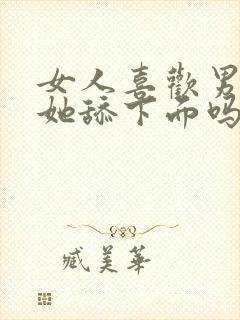 女人喜歡男
她舔下面吗
臧美華